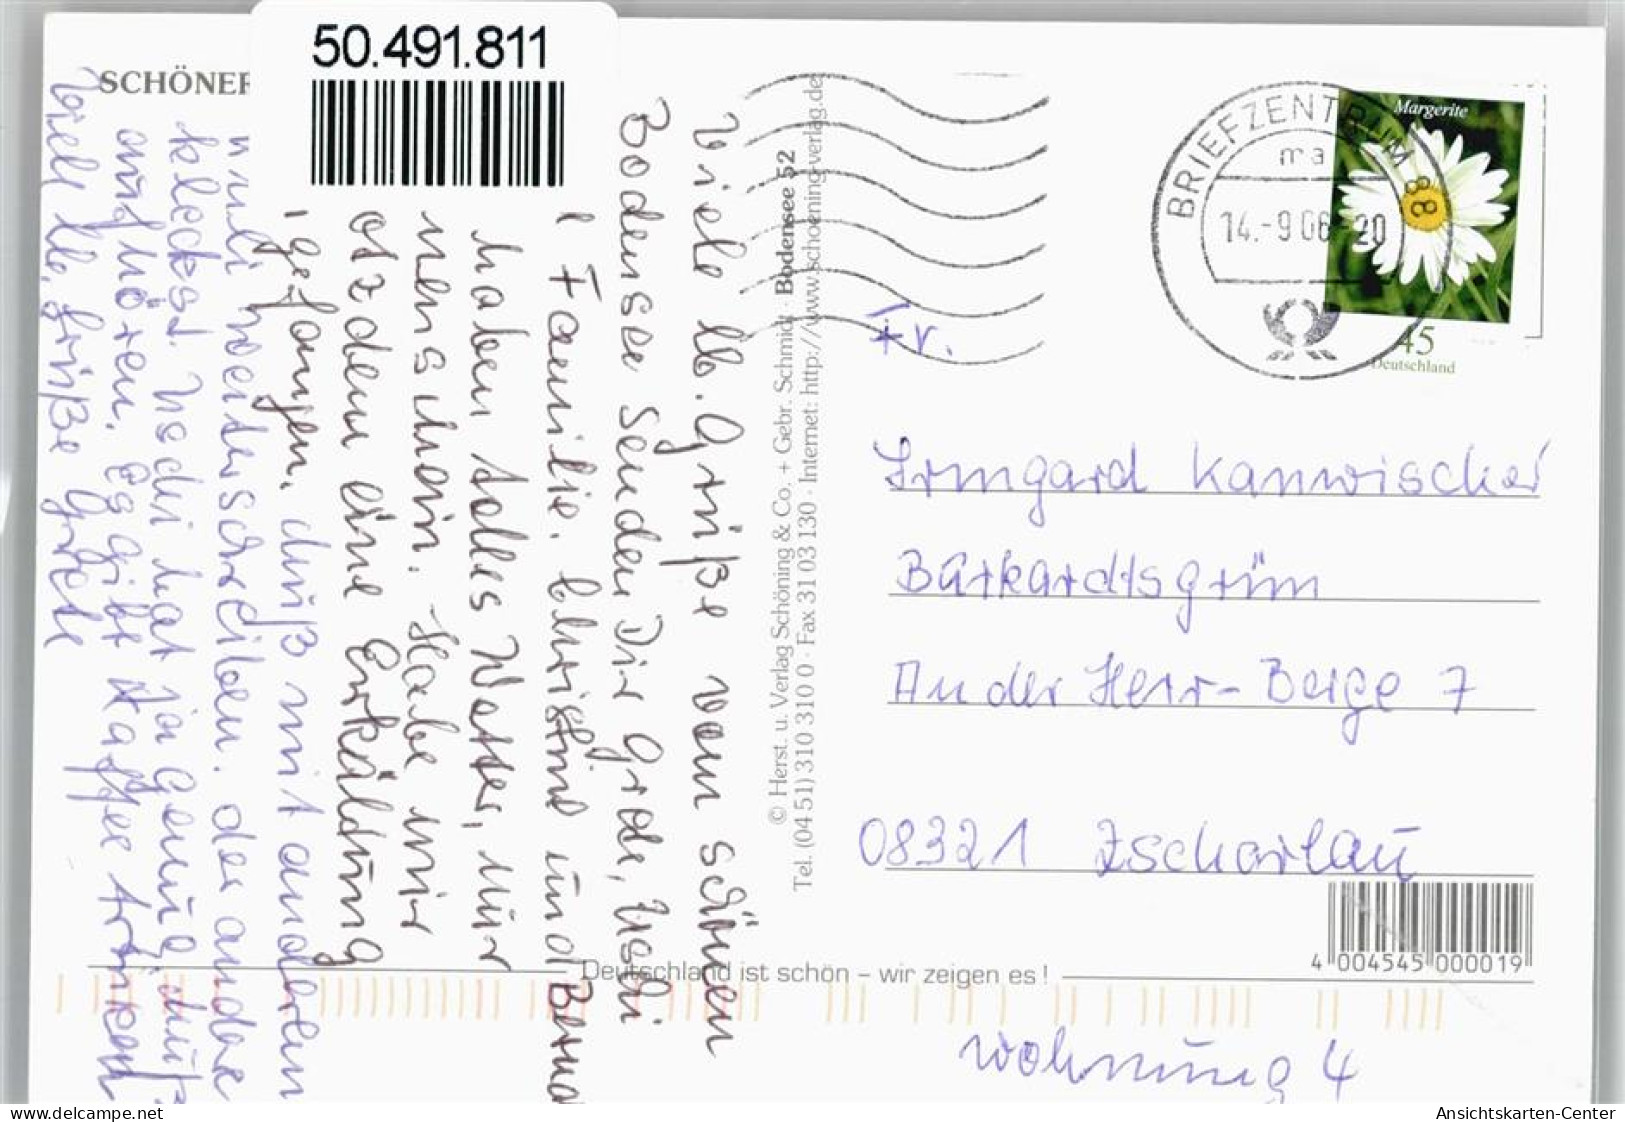 50.491.811
SCHÖNER
Viele lb. Grüße vom schönen
Bodensee senden Dir Grete, Uschi
Familie. Christine und Bernd
haben tolles Wetter, nur
menschein. Habe mir
otzdem eine Erkältung
gefangen. Muß mit anderen
kuli weiterschreiben. der andere
kleckst. Uschi hat ja genug, muß
aufhören. Es gibt Kaffee trinken
Viell lb. Grüße Grete
© Herst. u. Verlag Schöning & Co. + Gebr. Schmidt · Bodensee 52
Tel. (04 51) 310 310 0 · Fax 31 03 130 · Internet: http://www.schoening-verlag.de
BRIEFZENTRUM
ma
14.-9.06-20
Margerite
45
Deutschland
Fr.
Irmgard Kanwischer
Burkardtsgrün
An der Herr-Berge 7
08321 Zschorlau
4 004545 000019
Deutschland ist schön – wir zeigen es !
Wohnung 4
www.delcampe.net
Ansichtskarten-Center